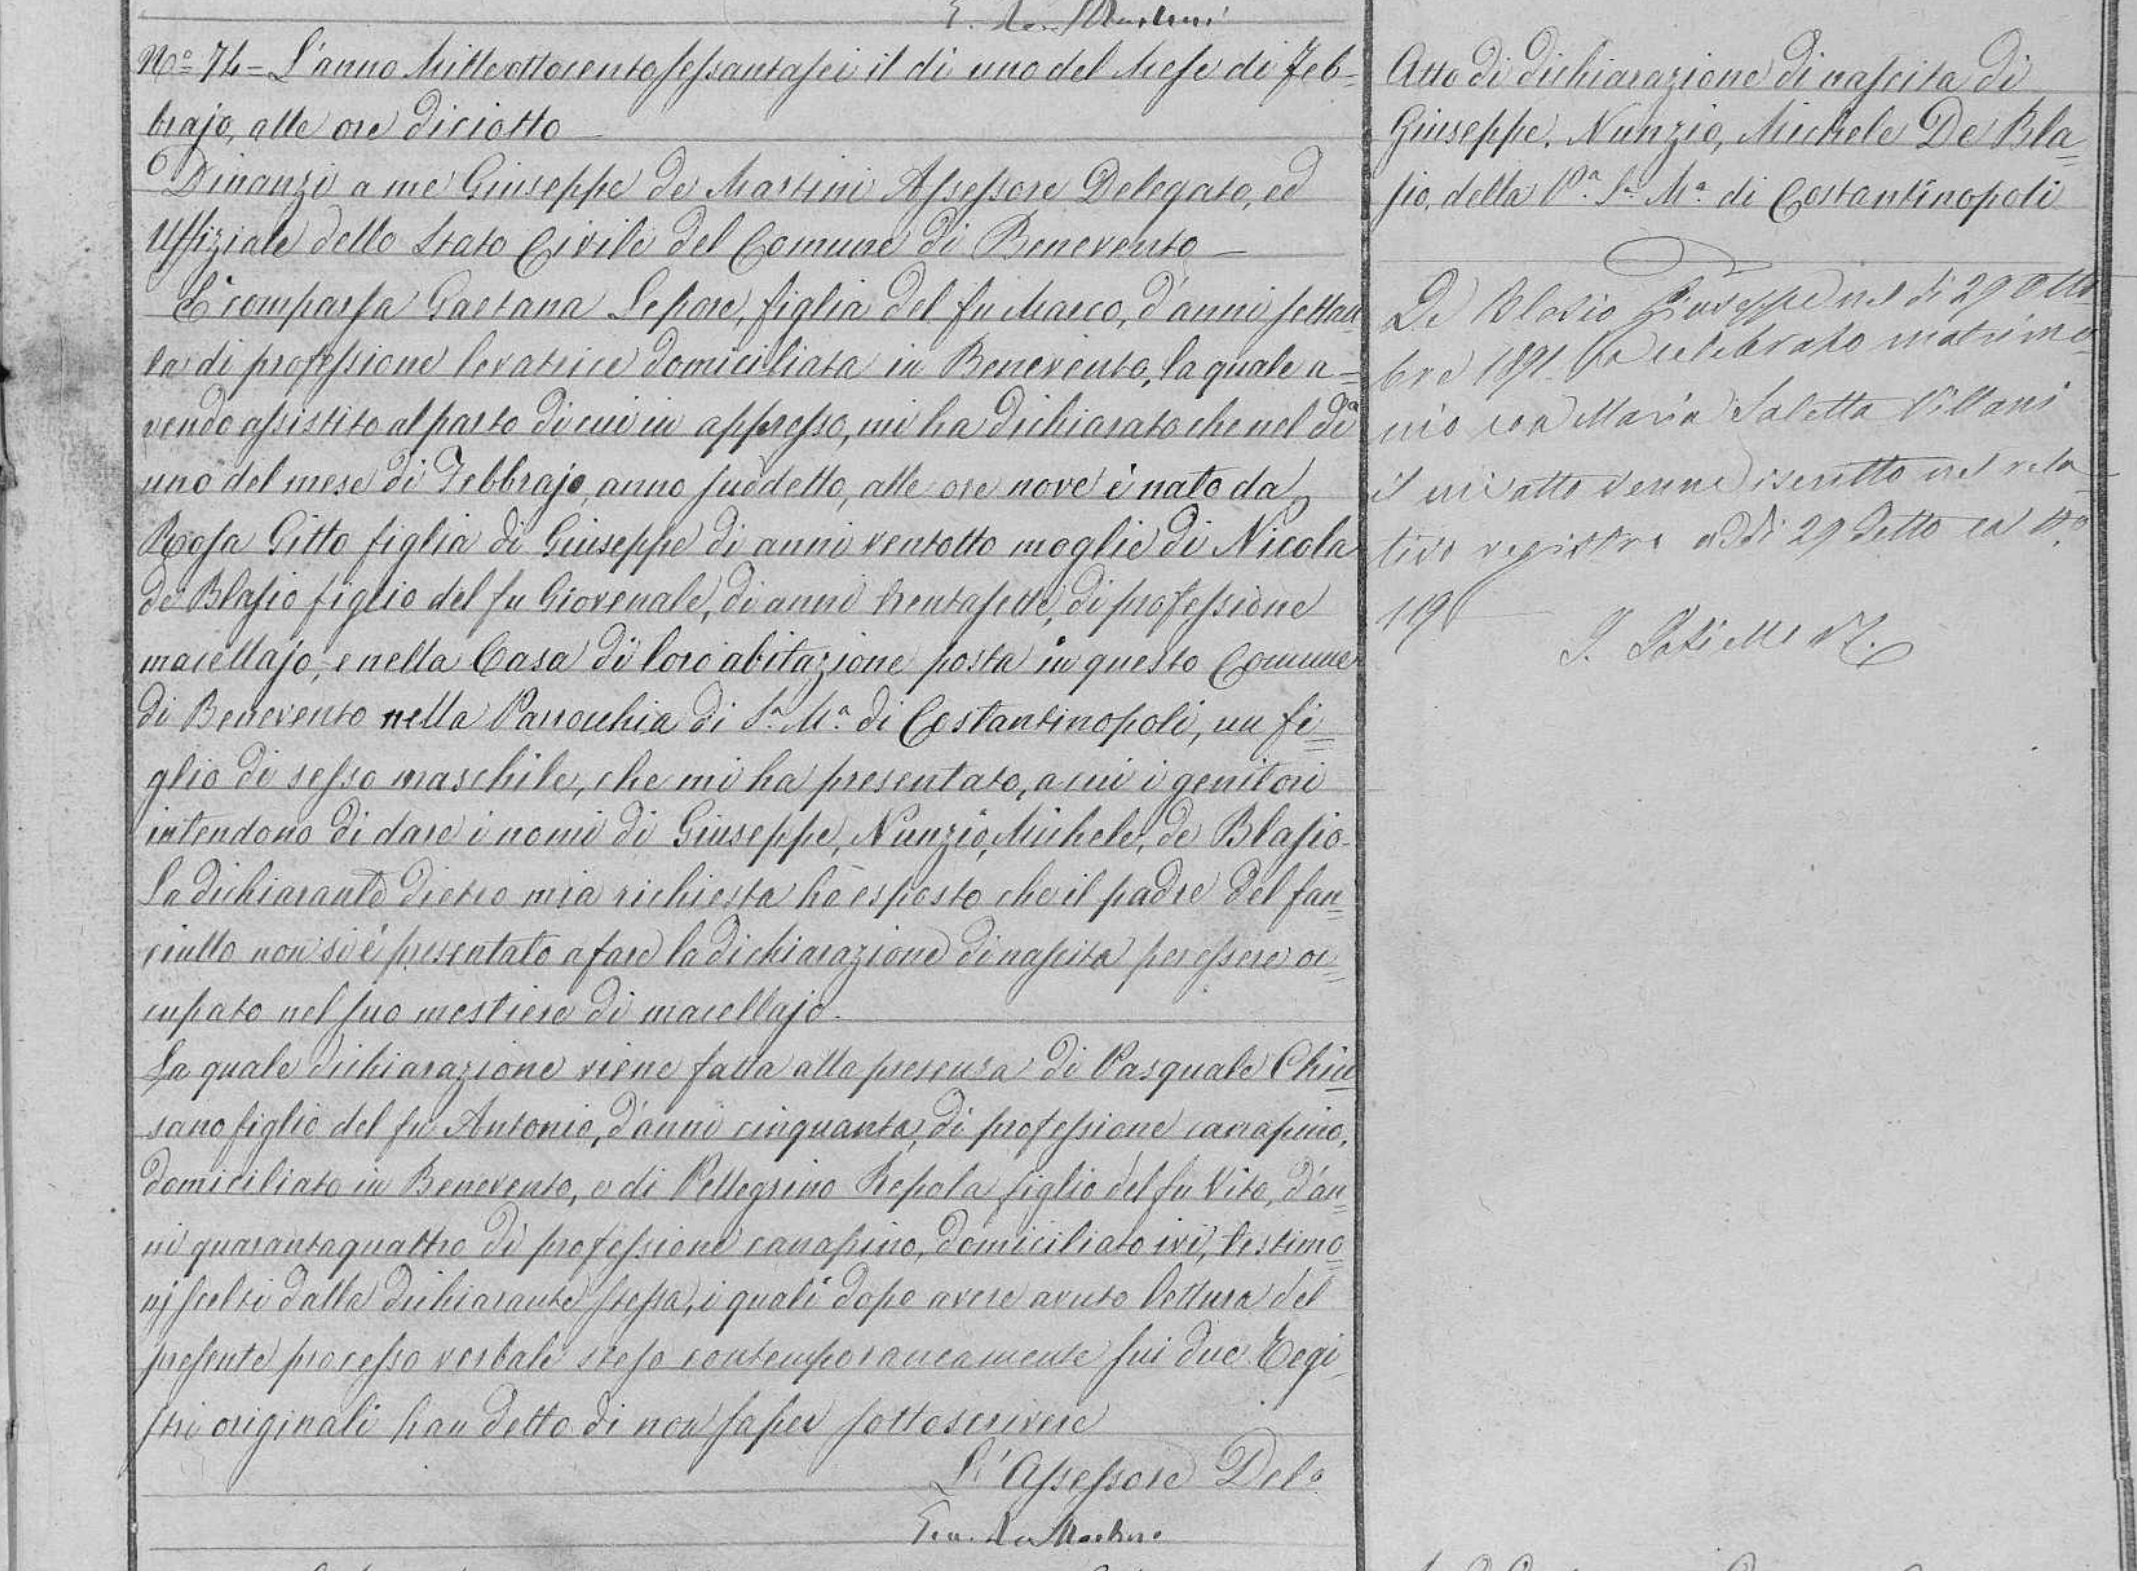 Nº 74 = L'anno Milleottocentosessantasei il di uno del Mese di Feb=
brajo, alle ore diciotto
Dinanzi a me Giuseppe de Martini Assessore Delegato, ed
Uffiziale dello Stato Civile del Comune di Benevento
È comparsa Gaetana Lepore, figlia del fu Marco, d'anni settan
ta di professione levatrice domiciliata in Benevento, la quale a=
vendo assistito al parto di cui in appresso, mi ha dichiarato che nel dì
uno del mese di Febbrajo, anno suddetto, alle ore nove è nato da
Rosa Gitto figlia di Giuseppe di anni ventotto moglie di Nicola
de Blasio figlio del fu Giovenale, di anni trentasette, di professione
macellajo, e nella Casa di loro abitazione posta in questo Comune
di Benevento nella Parrocchia di Sª Mª di Costantinopoli, un fi=
glio di sesso maschile, che mi ha presentato, a cui i genitori
intendono di dare i nomi di Giuseppe, Nunzio, Michele, de Blasio
La dichiarante dietro mia richiesta ha esposto che il padre del fan=
ciullo non si è presentato a fare la dichiarazione di nascita per essere oc=
cupato nel suo mestiere di macellajo.
La quale dichiarazione viene fatta alla presenza di Pasquale Chiu
sano figlio del fu Antonio, d'anni cinquanta, di professione canapino,
domiciliato in Benevento, e di Pellegrino Repola figlio del fu Vito, d'an=
ni quarantaquattro di professione canapino, domiciliato ivi, testimo=
nj scelti dalla dichiarante stessa, i quali dopo avere avuto lettura del
presente processo verbale steso contemporaneamente sui due Regi
stri originali han detto di non saper sottoscrivere
L'Assessore Delº
de Martini
Atto di dichiarazione di nascita di
Giuseppe, Nunzio, Michele De Bla=
sio, della Pª Sª Mª di Costantinopoli
De Blasio Giuseppe nel di 29 Otto
bre 1891 ha celebrato matrimo=
nio con Maria Saletta Villani
il cui atto venne iscritto nel rela
tivo registro addi 29 detto al Nº
119